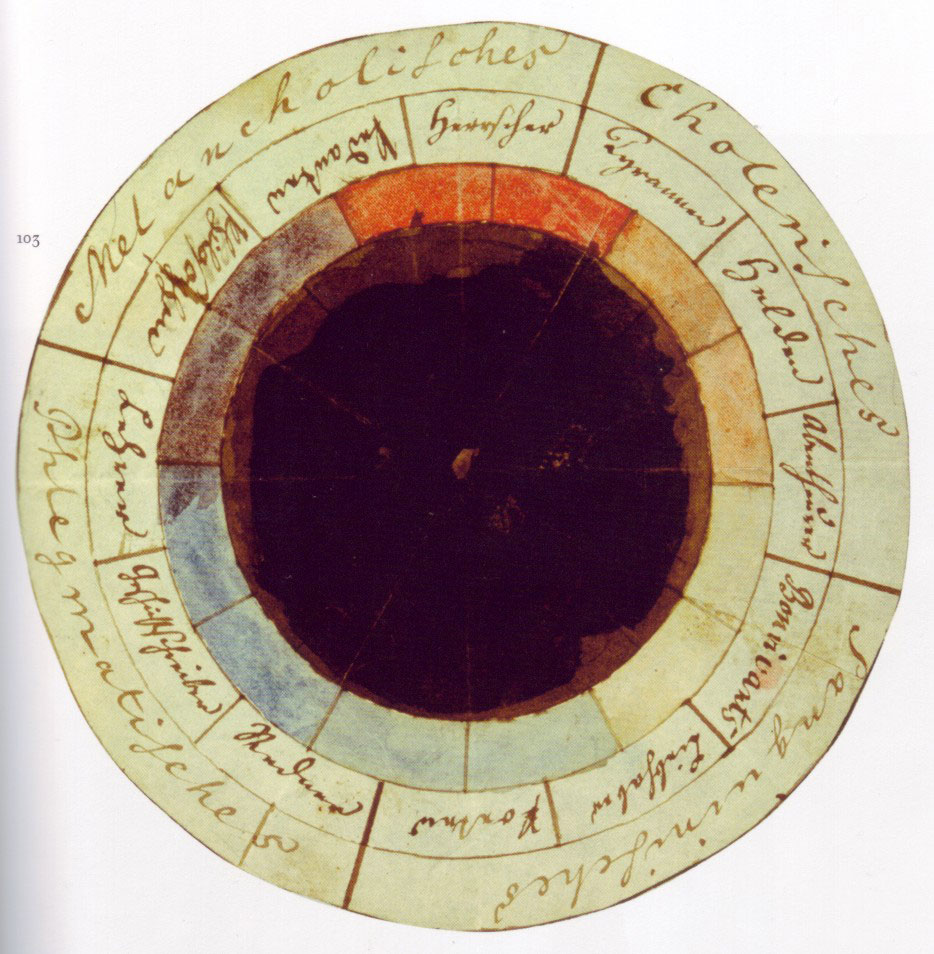 103
Cholerisches
Sanguinisches
Phlegmatisches
Melancholisches
Herrscher
Tyrannen
Helden
Abentheurer
Bonvivants
Liebhaber
Poeten
Redner
Geschichtschreiber
Lehrer
Philosophen
Pedanten